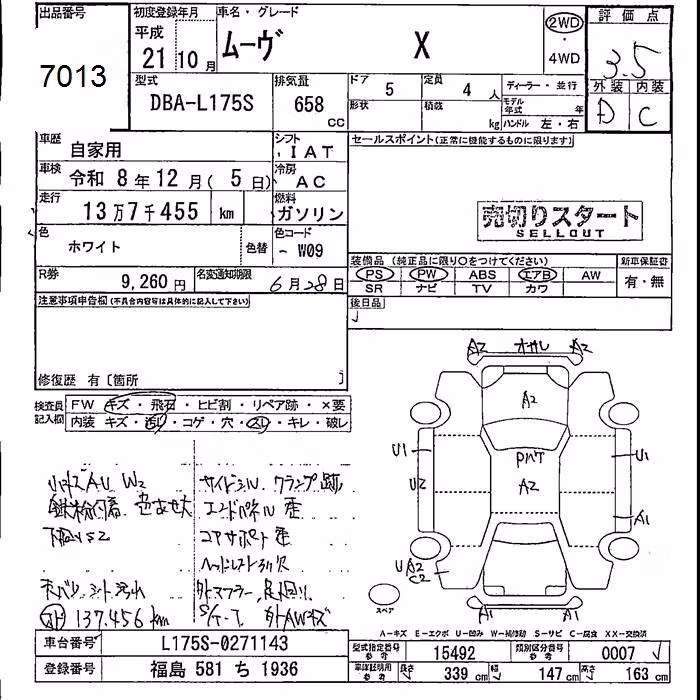 出品番号
7013
初度登録年月
平成
21年10月
車名・グレード
ムーヴ X
2WD
・
4WD
評価点
3.5
外装 内装
D C
型式
DBA-L175S
排気量
658
cc
ドア
5
定員
4人
ディーラー・並行
形状
積載
kg
モデル年式
年
ハンドル 左・右
車歴
自家用
シフト
IAT
セールスポイント(正常に機能するものに限ります)
車検
令和 8年12月(5日)
冷房
AC
走行
13万7千455 km
燃料
ガソリン
売切りスタート
SELLOUT
色
ホワイト
色替
色コード
- W09
装備品(純正品に限り○をつけてください)
新車保証書
PS PW ABS エアB AW
有・無
SR ナビ TV カワ
R券
9,260円
名変通知期限
6月28日
後日品
注意事項申告欄(不具合内容等は具体的に記入して下さい)
修復歴 有〔箇所 〕
検査員記入欄
FW キズ・飛石・ヒビ割・リペア跡・×要
内装 キズ・汚れ・コゲ・穴・スレ・キレ・破レ
A2 オカレ A2
A2
U1 PハゲU1
U2 A2
A1
UA2
C2
A1 A1
スペア
リアキズAU W2
サイドシル クランプ跡
鉄粉付着 色あせ大
エンドパネル 歪
下廻りS2
コアサポート 歪
ヘッドレスト3ケ欠
天バリ シート汚れ
外マフラー, 足廻り
137,456 km
S/T-T 外AWキズ
A-キズ E-エクボ U-凹み W-補修跡 S-サビ C-腐食 XX-交換済
車台番号
L175S-0271143
型式指定番号
参考
15492
類別区分番号
参考
0007
登録番号
福島 581 ち 1936
車庫証明用
参考
長さ
339 cm
幅
147 cm
高さ
163 cm